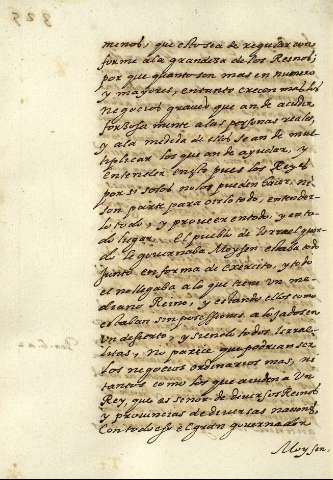 325
menos, que esto sea de regular con
forme a la grandeza de los Reinos;
por que quanto son mas en numero
y mayores, en tanto crecen mas los
negocios graues que an de acudir
forzosa mente a las personas reales,
y a la medida de ellos se an de mul
tiplicar los que an de ayudar, y
entender en ello pues los Reyes
por si solos no los pueden hacer, ni
son parte para oirlo todo, entender
lo todo, y proueer en todo, y en to
do lugar. El pueblo de Israel quan
do le gouernaba Moysen estaba todo
junto en forma de exercito, y todo
el no llegaba a lo que tiene Un me
diano Reino, y estando ellos como
estaban sin posessiones alojados en
Un desierto, y siendo todos Isrrae
litas, No parece que podrian ser
los negocios ordinarios mas, ni
tantos como los que acuden a Un
Rey, que es señor de diuersos Reinos
y prouincias de diuersas naciones,
Con todo esso el gran gouernador
Moysen